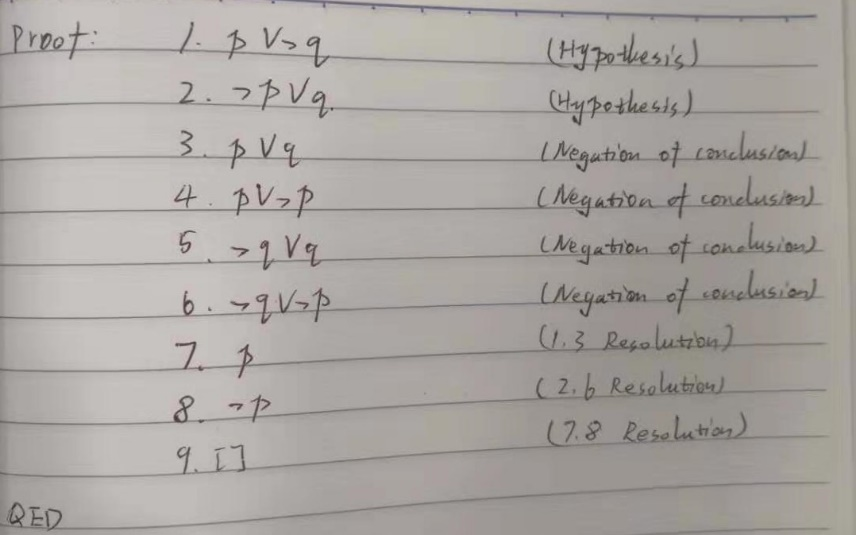 Proof: 1. p ∨ ¬q (Hypothesis)
2. ¬p ∨ q. (Hypothesis)
3. p ∨ q (Negation of conclusion)
4. p ∨ ¬p (Negation of conclusion)
5. ¬q ∨ q (Negation of conclusion)
6. ¬q ∨ ¬p (Negation of conclusion)
7. p (1.3 Resolution)
8. ¬p (2.6 Resolution)
9. [] (7.8 Resolution)
QED